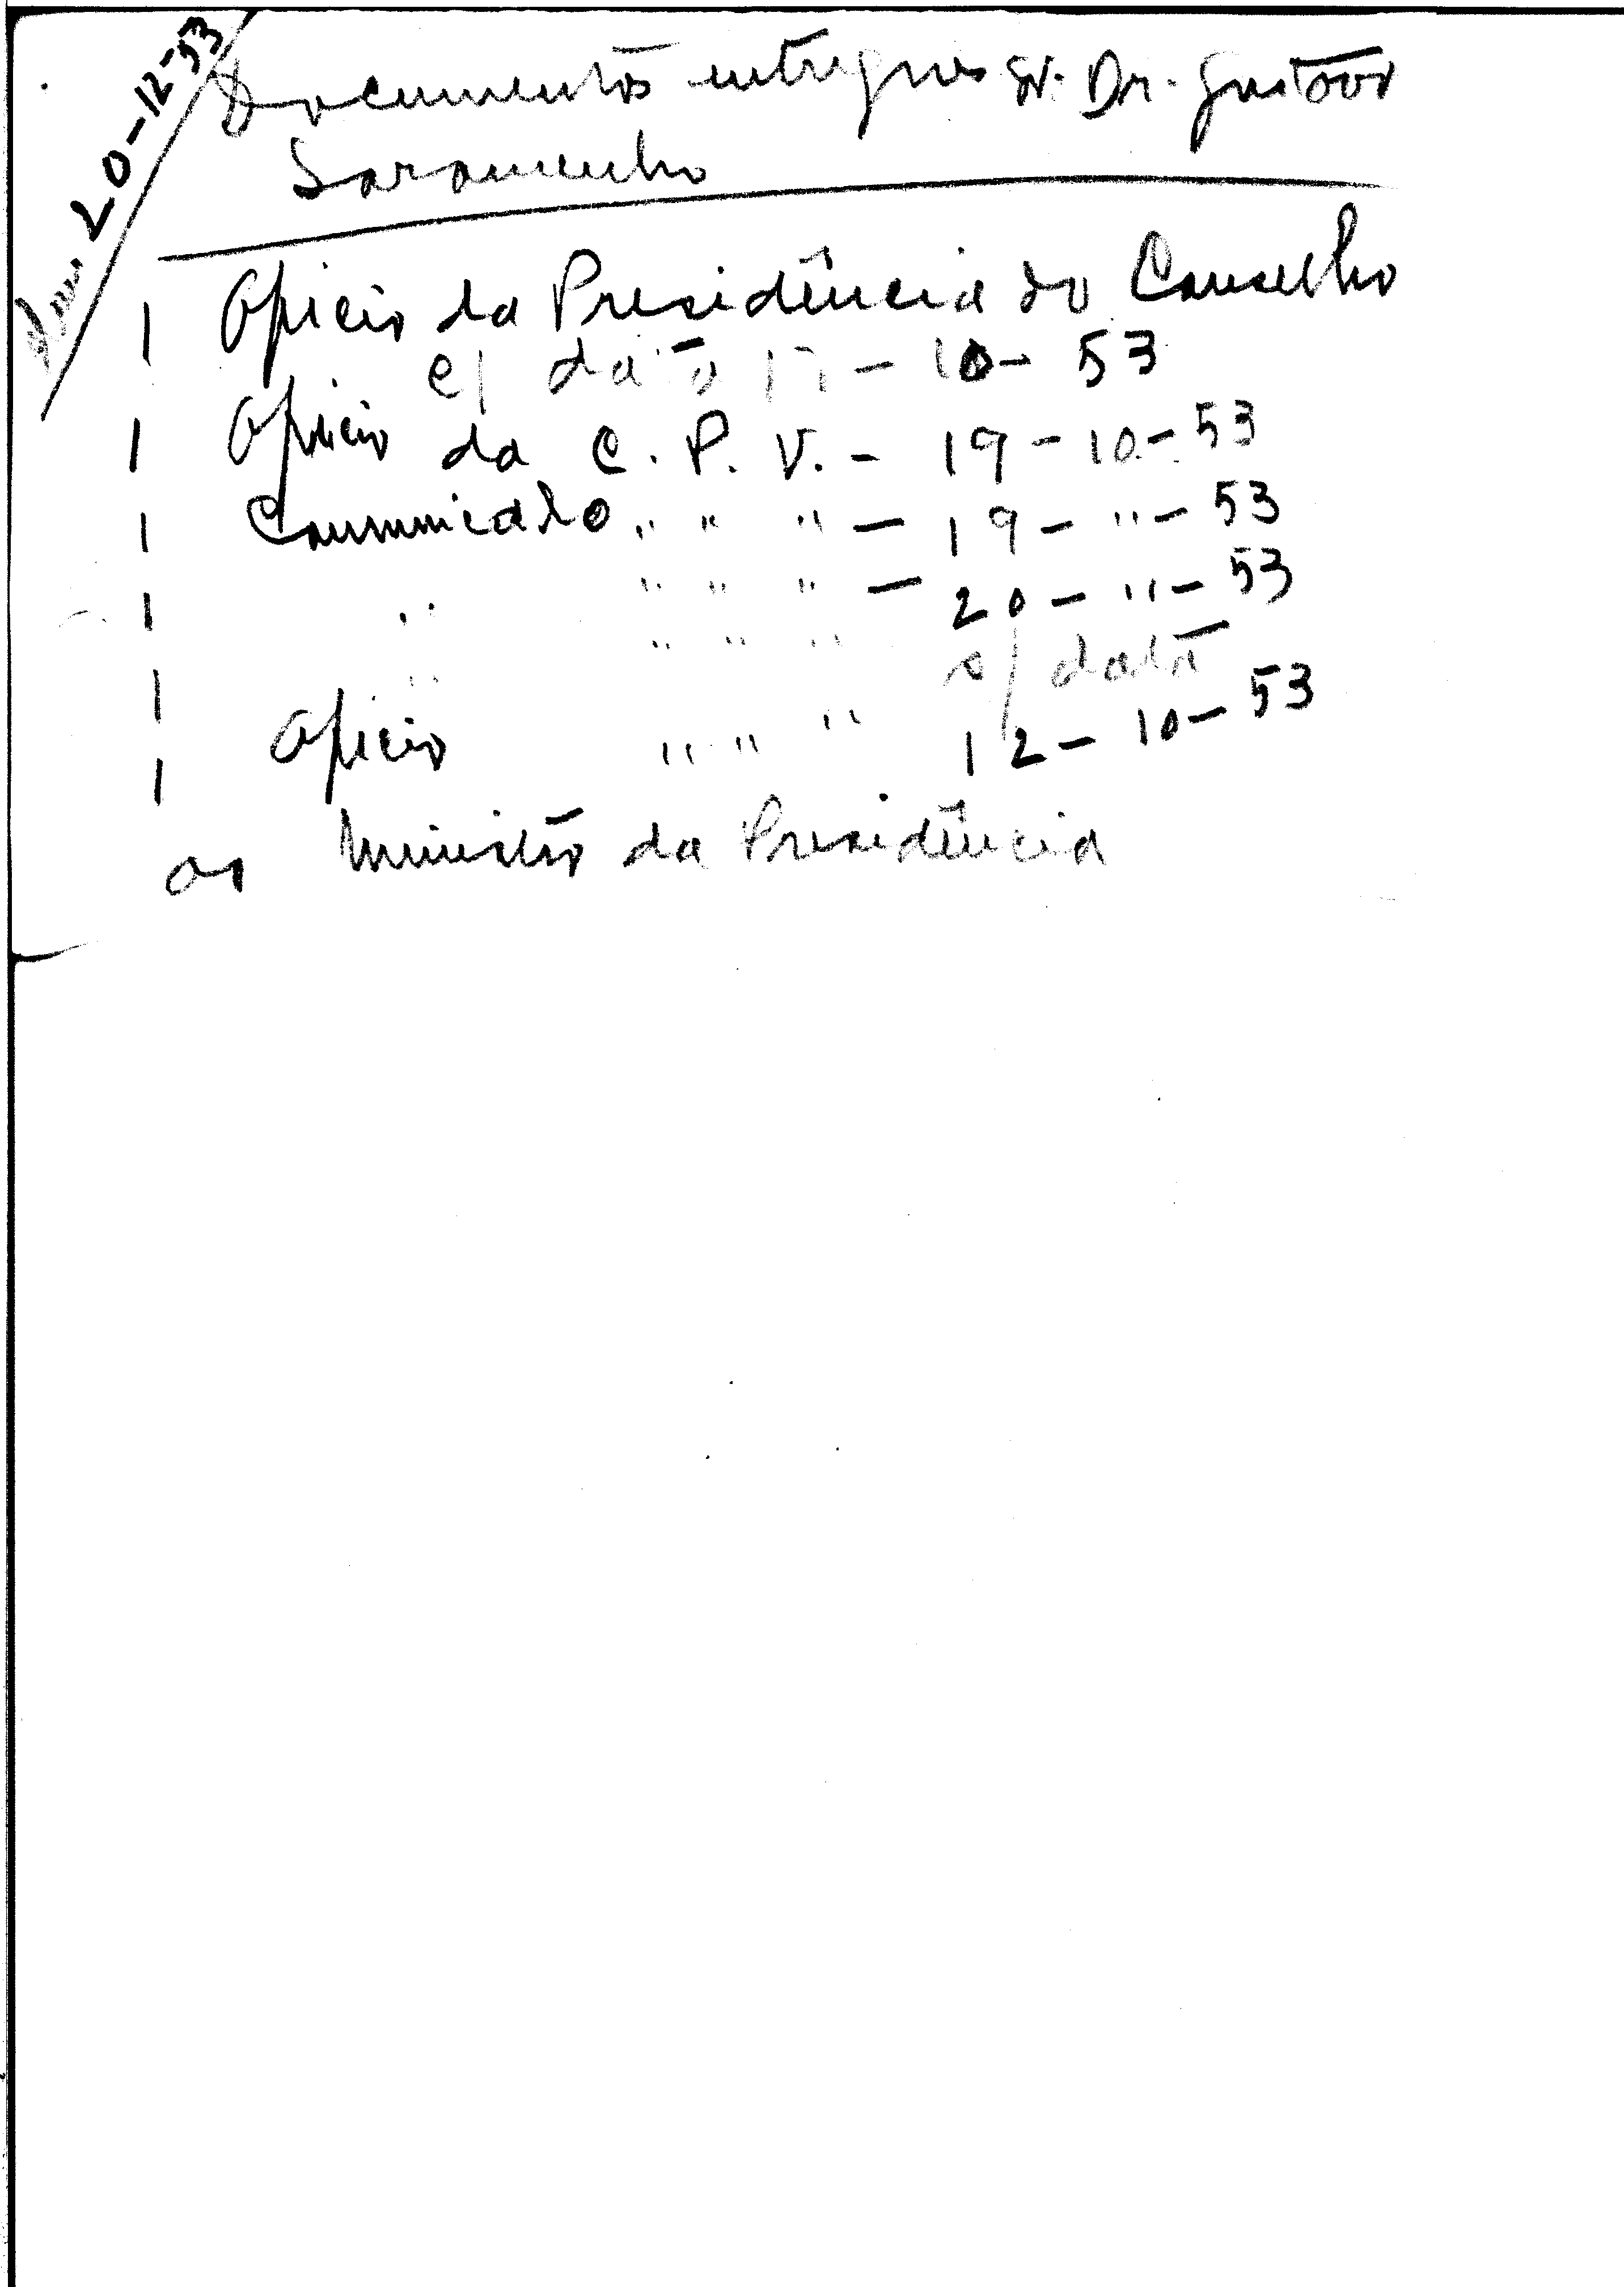 Em 20-12-53
Documentos entregues Sr. Dr. Gustavo
Soromenho
1 Ofício da Presidência do Conselho
c/ data - 10 - 53
1 Ofício da C. P. V. - 19 - 10 - 53
1 Comunicado " " " - 19 - " - 53
1 " " " " - 20 - " - 53
1 " " " " s/ data
1 Ofício " " " 12 - 10 - 53
ao Ministro da Presidência